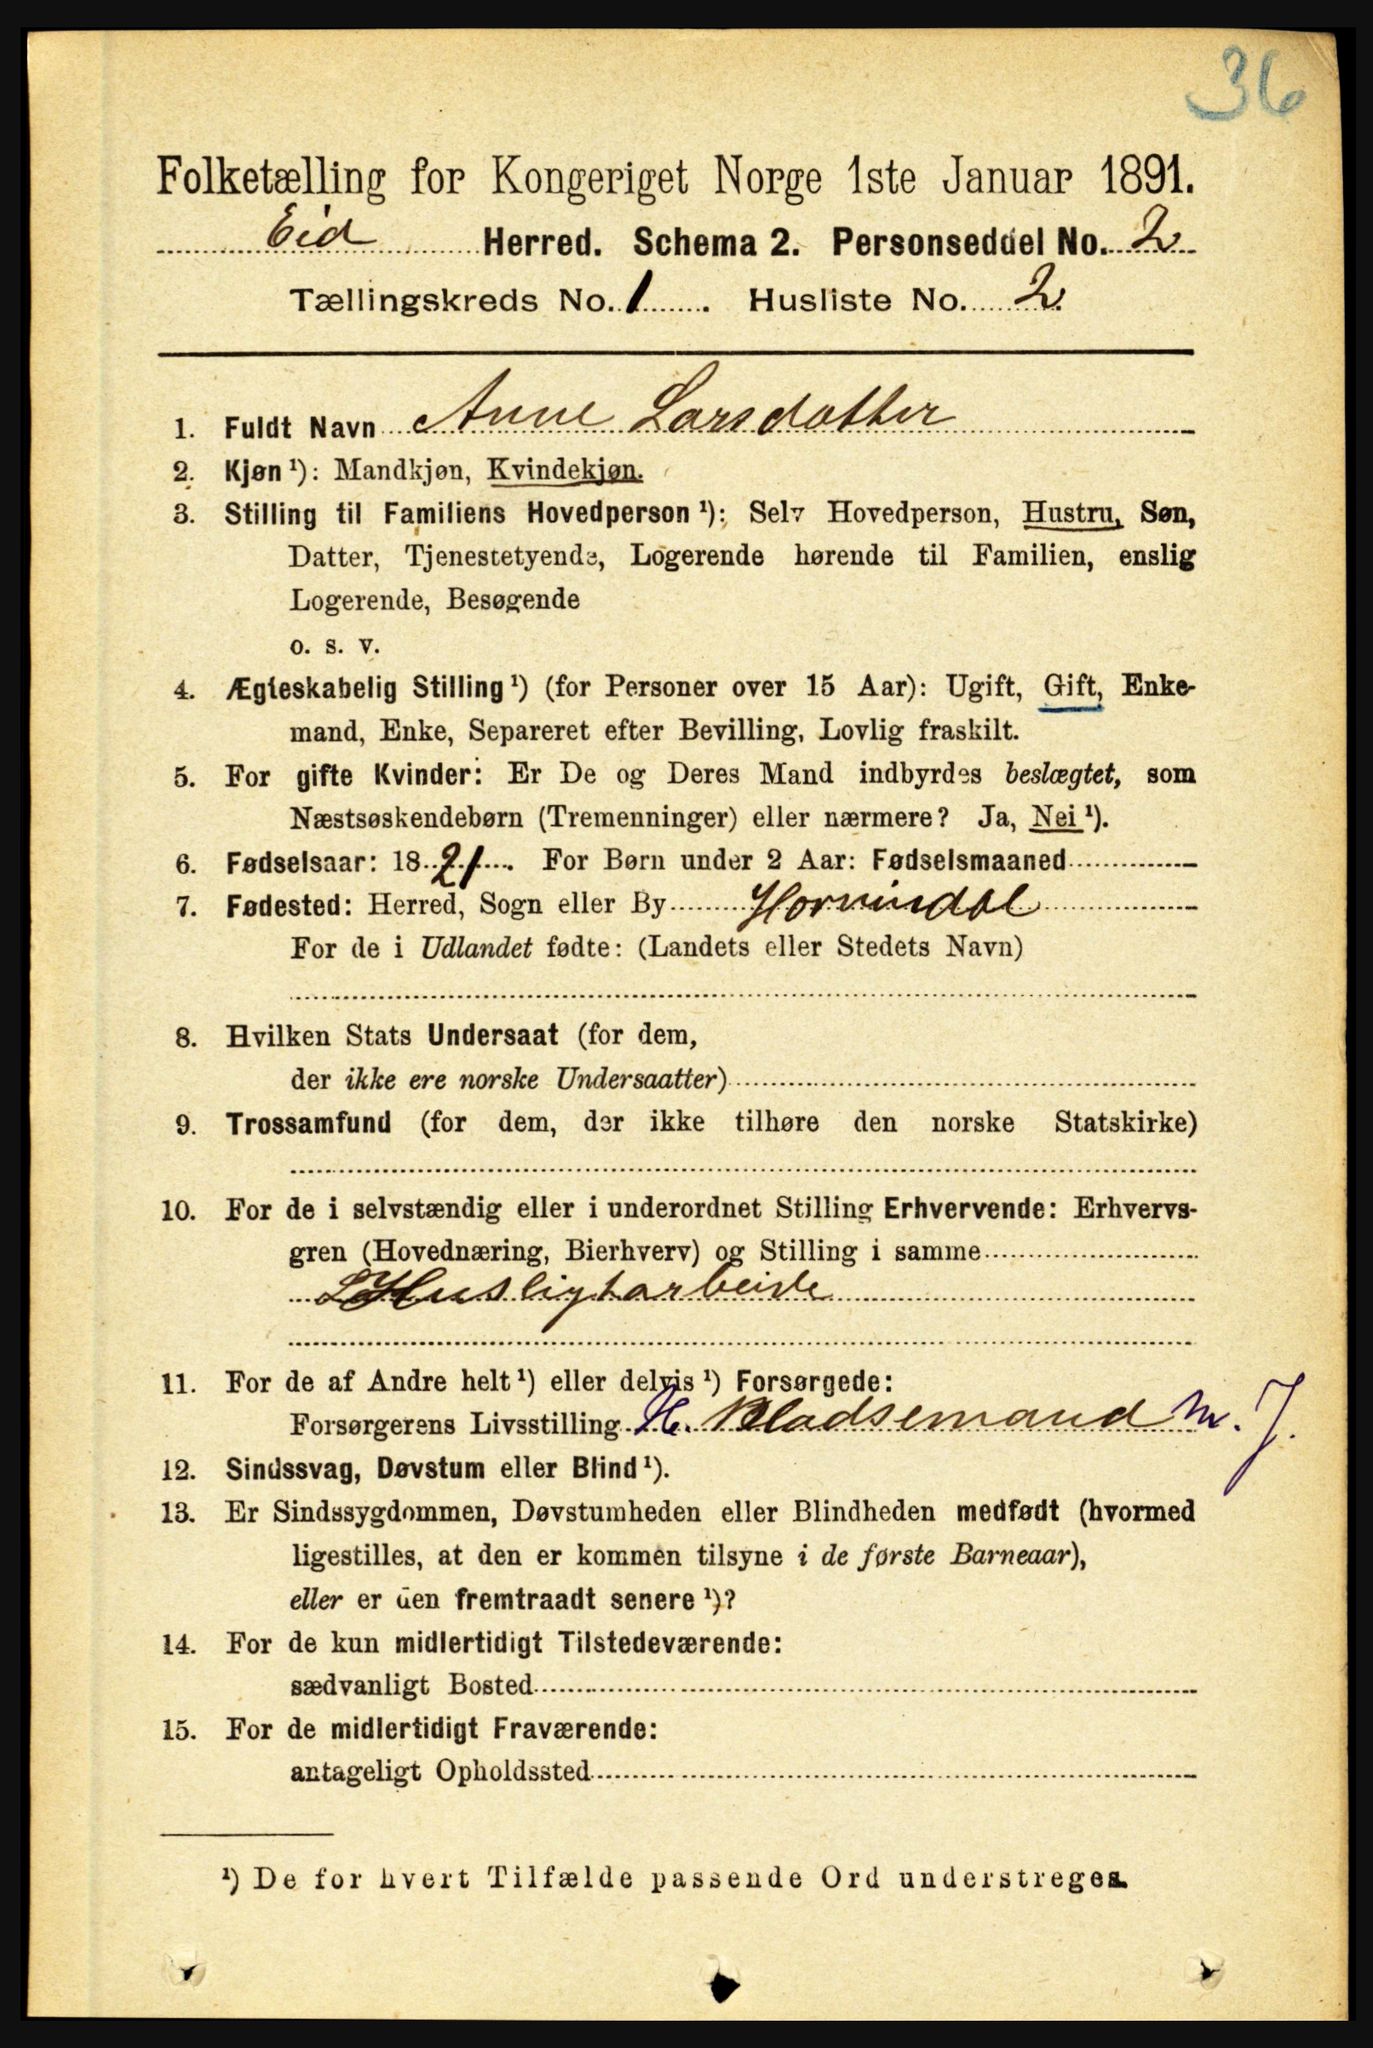 36
Folketælling for Kongeriget Norge 1ste Januar 1891.
Eid Herred. Schema 2. Personseddel No. 2
Tællingskreds No. 1. Husliste No. 2
1. Fuldt Navn Anne Larsdatter
2. Kjøn ¹): Mandkjøn, Kvindekjøn.
3. Stilling til Familiens Hovedperson ¹): Selv Hovedperson, Hustru, Søn,
Datter, Tjenestetyende, Logerende hørende til Familien, enslig
Logerende, Besøgende
o. s. v.
4. Ægteskabelig Stilling ¹) (for Personer over 15 Aar): Ugift, Gift, Enke-
mand, Enke, Separeret efter Bevilling, Lovlig fraskilt.
5. For gifte Kvinder: Er De og Deres Mand indbyrdes beslægtet, som
Næstsøskendebørn (Tremenninger) eller nærmere? Ja, Nei ¹).
6. Fødselsaar: 1821. For Børn under 2 Aar: Fødselsmaaned
7. Fødested: Herred, Sogn eller By Hornindal
For de i Udlandet fødte: (Landets eller Stedets Navn)
8. Hvilken Stats Undersaat (for dem,
der ikke ere norske Undersaatter)
9. Trossamfund (for dem, der ikke tilhøre den norske Statskirke)
10. For de i selvstændig eller i underordnet Stilling Erhvervende: Erhvervs-
gren (Hovednæring, Bierhverv) og Stilling i samme
Husligtarbeide
11. For de af Andre helt ¹) eller delvis ¹) Forsørgede:
Forsørgerens Livsstilling H. Pladsemand m. J.
12. Sindssvag, Døvstum eller Blind ¹).
13. Er Sindssygdommen, Døvstumheden eller Blindheden medfødt (hvormed
ligestilles, at den er kommen tilsyne i de første Barneaar),
eller er den fremtraadt senere ¹)?
14. For de kun midlertidigt Tilstedeværende:
sædvanligt Bosted
15. For de midlertidigt Fraværende:
antageligt Opholdssted
¹) De for hvert Tilfælde passende Ord understreges.